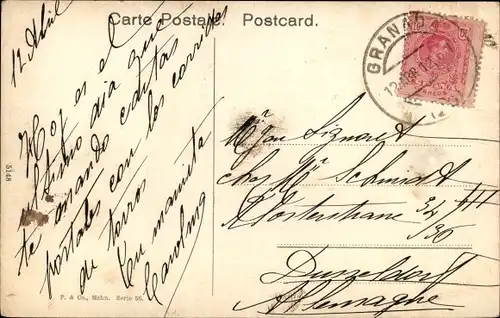 Carte Postale. Postcard.
12 Abril
Hoy es el
ultimo dia que
te mando estas
postales con las corridas
de toros
tu mamita
Carolina
5148
P. & Co., Mchn. Serie 56.
GRANADA
Mr Jean Signoret
chez Mr Schmidt
Klosterstrasse 34 III
Dusseldorf
Allemagne